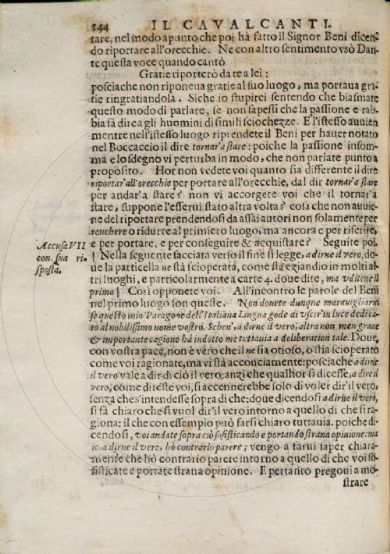 144 IL CAVALCANTI.
tare, nel modo apunto che poi hà fatto il Signor Beni dicen-
do riportare all'orecchie. Ne con altro sentimento vsò Dan-
te questa voce quando cantò
Gratie riporterò da te a lei:
posciache non riponeua gratie al suo luogo, ma portaua gra-
tie ringratiandola. Siche io stupirei sentendo che biasmate
questo modo di parlare, se non sapessi che la passione e rab-
bia fà dire a gli huomini di simili sciochezze. E l'istesso auuien
mentre nell'istesso luogo riprendete il Beni per hauer notato
nel Boccaccio il dire tornar'a stare: poiche la passione insom-
ma e lo sdegno vi perturba in modo, che non parlate punto a
proposito. Hor non vedete voi quanto sia differente il dire
riportar'all'orecchie per portare all'orecchie, dal dir tornar'a stare
per andar'a stare? non vi accorgere voi che il tornar'a
stare, suppone l'esserui stato altra volta? cosa che non auuie-
ne del riportare prendendosi da assai autori non solamente per
reuchere o ridurre al primiero luogo, ma ancora e per riferire,
e per portare, e per conseguire & acquistare? Seguite poi.
Accusa VII
con sua ri-
sposta.
Nella seguente facciata verso il fine si legge, a dirne il vero, do-
ue la particella ne stà scioperata, come stà eziandio in molti al-
tri luoghi, e particolarmente à carte 4. doue dite, ma vdite ne il
primo Così opponete voi. All'incontro le parole del Beni
nel primo luogo son queste. Non douete dunque marauigliarui
se questo mio Paragone dell'Italiana Lingua gode di vscir'in luce dedica-
to al nobilissimo nome vostro. Seben', a dirne il vero, altra non men graue
& importante cagione hà indotto me tuttauia a deliberation tale. Doue,
con vostra pace, non è vero che il ne sia otioso, o stia scioperato
come voi ragionate, ma vi stà acconciamente: posciache a dirne
il vero vale a dir di ciò il vero: anzi che qualhor si dicesse, a dire il
vero, come direste voi, si accennerebbe solo di voler dir'il vero:
senza che s'intendesse sopra di che: doue dicendosi a dirne il vero,
si fà chiaro che si vuol dir'il vero intorno a quello di che si ra-
giona: il che con essempio può farsi chiaro tuttauia. poiche di-
cendosi, voi andate sopra ciò sofisticando e portando strana opinione. ma
io, a dirne il vero, hò contrario parere; vengo a farui saper chiara-
mente che hò contrario parere intorno a quello di che voi so-
fisticate e portate strana opinione. E pertanto pregoui a mo-
strare